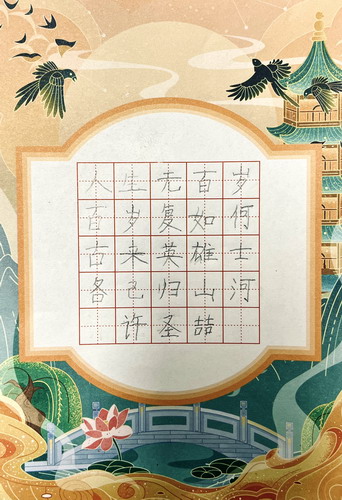 人生无百岁
百岁复如何
古来英雄士
各已归山河
许圣喆